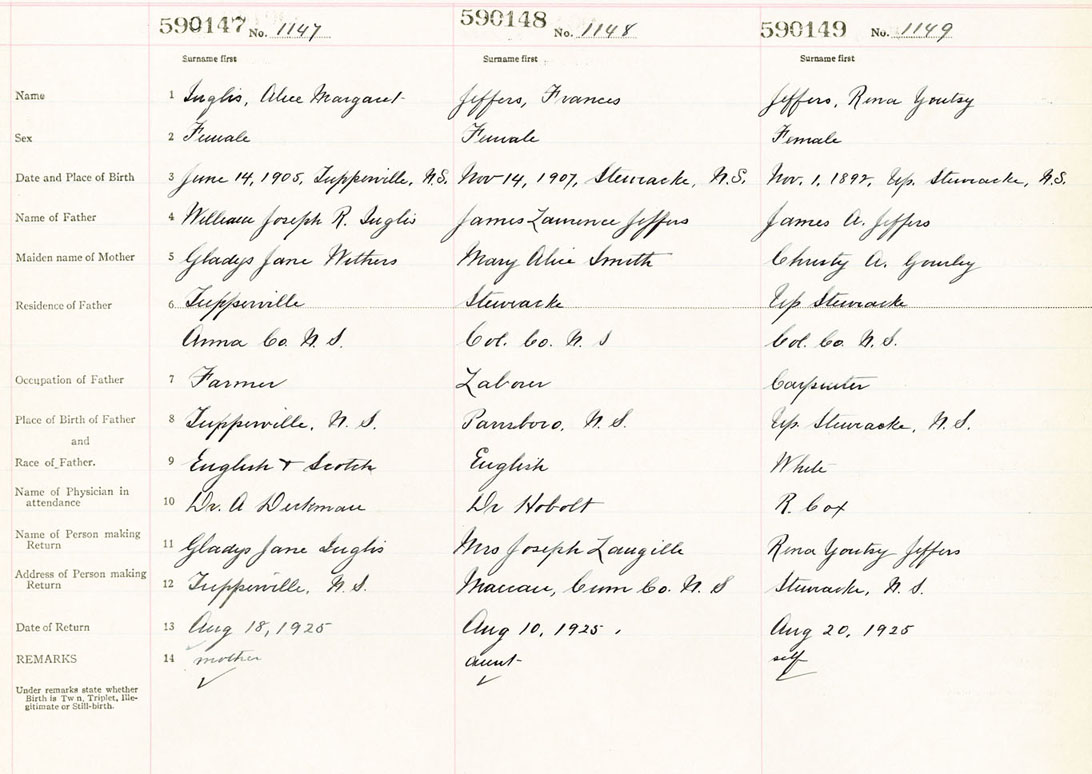 590147 No. 1147 590148 No. 1148 590149 No. 1149
Surname first Surname first Surname first
Name 1 Inglis, Alice Margaret Jeffers, Frances Jeffers, Rena Youtsy
Sex 2 Female Female Female
Date and Place of Birth 3 June 14, 1905, Tupperville, N.S. Nov 14, 1907, Stewiacke, N.S. Nov. 1, 1892, Up. Stewiacke, N.S.
Name of Father 4 William Joseph R. Inglis James Laurence Jeffers James A. Jeffers
Maiden name of Mother 5 Gladys Jane Withers Mary Alice Smith Christy A. Gourley
Residence of Father 6 Tupperville Stewiacke Up Stewiacke
Anna Co. N. S. Col. Co. N. S Col. Co. N. S.
Occupation of Father 7 Farmer Labour Carpenter
Place of Birth of Father 8 Tupperville, N. S. Parrsboro, N. S. Up. Stewiacke, N. S.
and
Race of Father. 9 English & Scotch English White
Name of Physician in
attendance 10 Dr. A Dr R. Cox
Name of Person making
Return 11 Gladys Jane Inglis Mrs Joseph Langille Rena Youtsy Jeffers
Address of Person making
Return 12 Tupperville, N. S. Maccan, Cum Co. N. S Stewiacke, N. S.
Date of Return 13 Aug 18, 1925 Aug 10, 1925 Aug 20, 1925
REMARKS 14 mother aunt self
Under remarks state whether
Birth is Twin, Triplet, Ille-
gitimate or Still-birth.